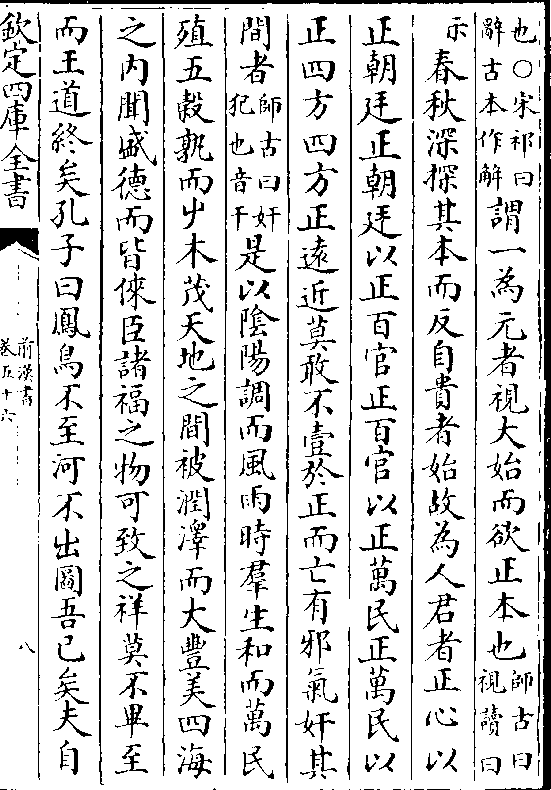 也○宋祁曰
辭古本作解
謂一為元者視大始而欲正本也
師古曰
視讀曰
示
春秋深探其本而反自貴者始故為人君者正心以
正朝廷正朝廷以正百官正百官以正萬民正萬民以
正四方四方正遠近莫敢不壹於正而亡有邪氣奸其
間者
師古曰奸
犯也音干
是以陰陽調而風雨時羣生和而萬民
殖五穀孰而屮木茂天地之間被潤澤而大豐美四海
之内聞盛德而皆倈臣諸福之物可致之祥莫不畢至
而王道終矣孔子曰鳳鳥不至河不出圖吾已矣夫自
欽定四庫全書
前漢書
卷五十六
八